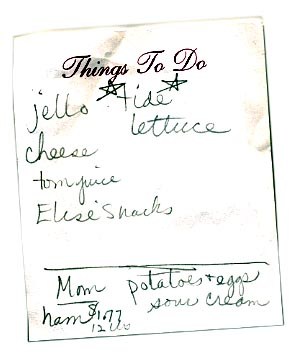 Things To Do
jello ☆ Tide ☆
lettuce
cheese
tom juice
Elise Snacks
Mom potatoes + eggs
sour cream
ham $10.77